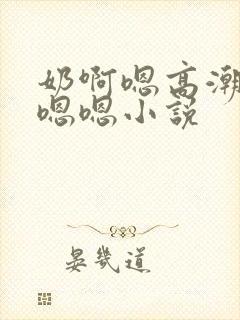 奶啊嗯高潮
嗯嗯小説
晏幾道